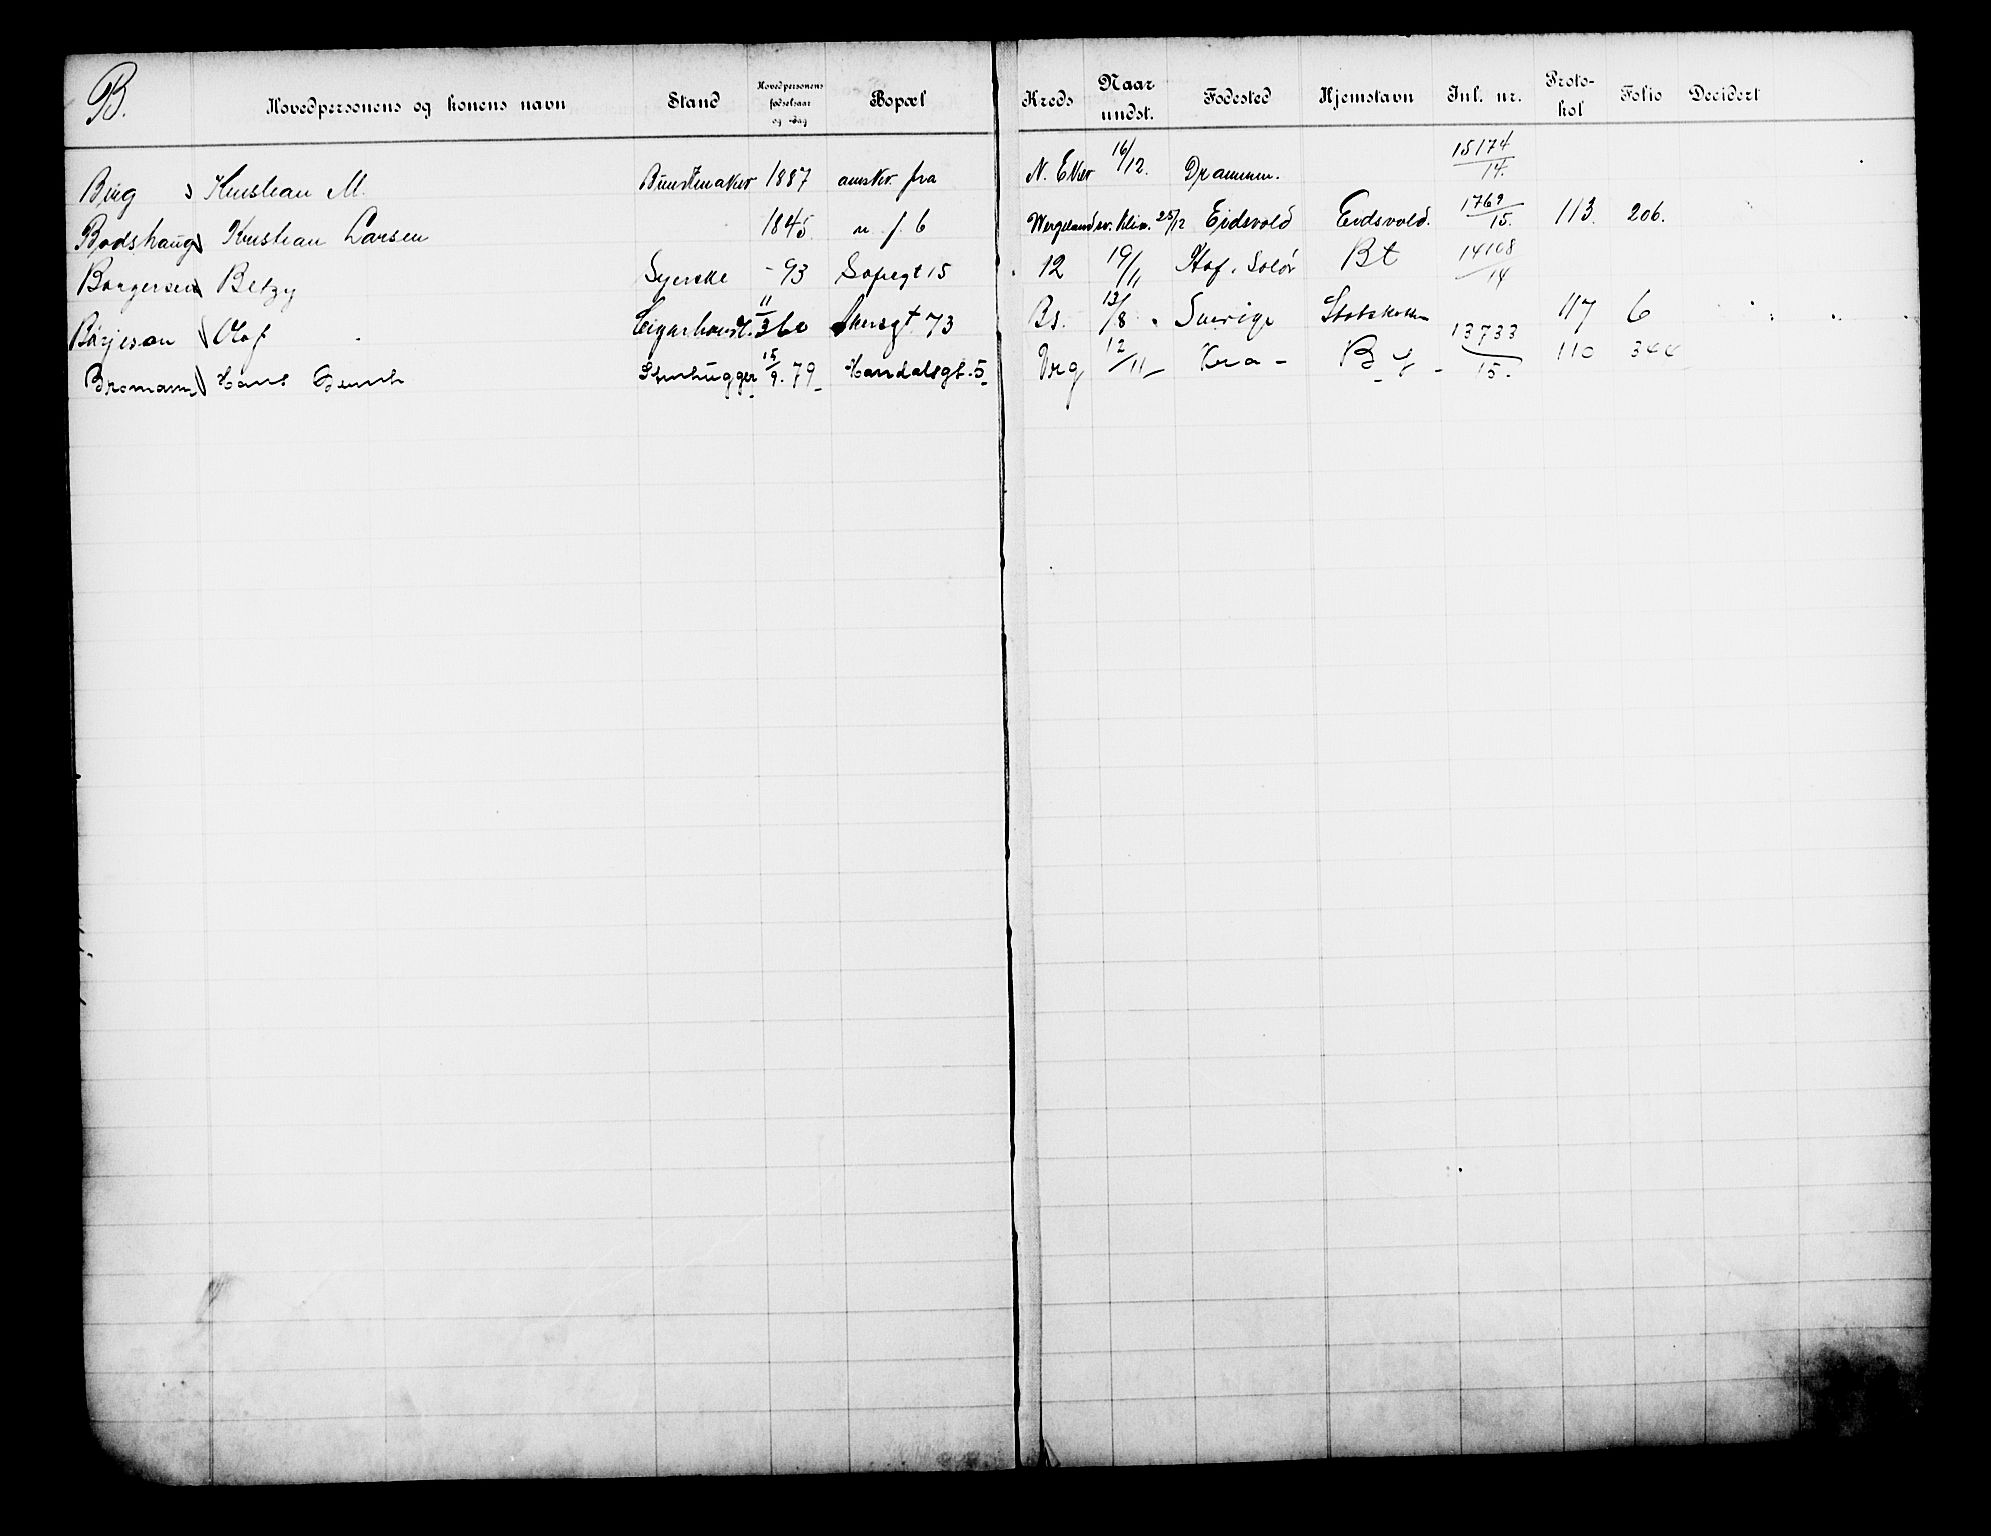 B.
Hovedpersonens og konens navn Stand Hovedpersonens fødselsaar og -dag Bopæl Kreds Naar undst. Fødested Hjemstavn Jnl. nr. Protokol Folio Decidert
Berg Kristian M. 1887 fra N. Eker 16/12. Drammen. 15174/14.
Bødshaug Kristian Larsen 1845 n. f. 6 25/12 Eidsvold Eidsvold. 1769/15. 113. 206.
Borgersen Betzy Syerske - 93 Sofiegt 15 12 19/11 Hof, Solør Bt 14108/14
Börjeson Olof 11/3 60 Akersgt 73 Bs. 13/8 Sverige 117 6
Bromann Hans Stenhugger 15/9. 79 5 Vrg 12/11 Kra - 13733/15. 110 344